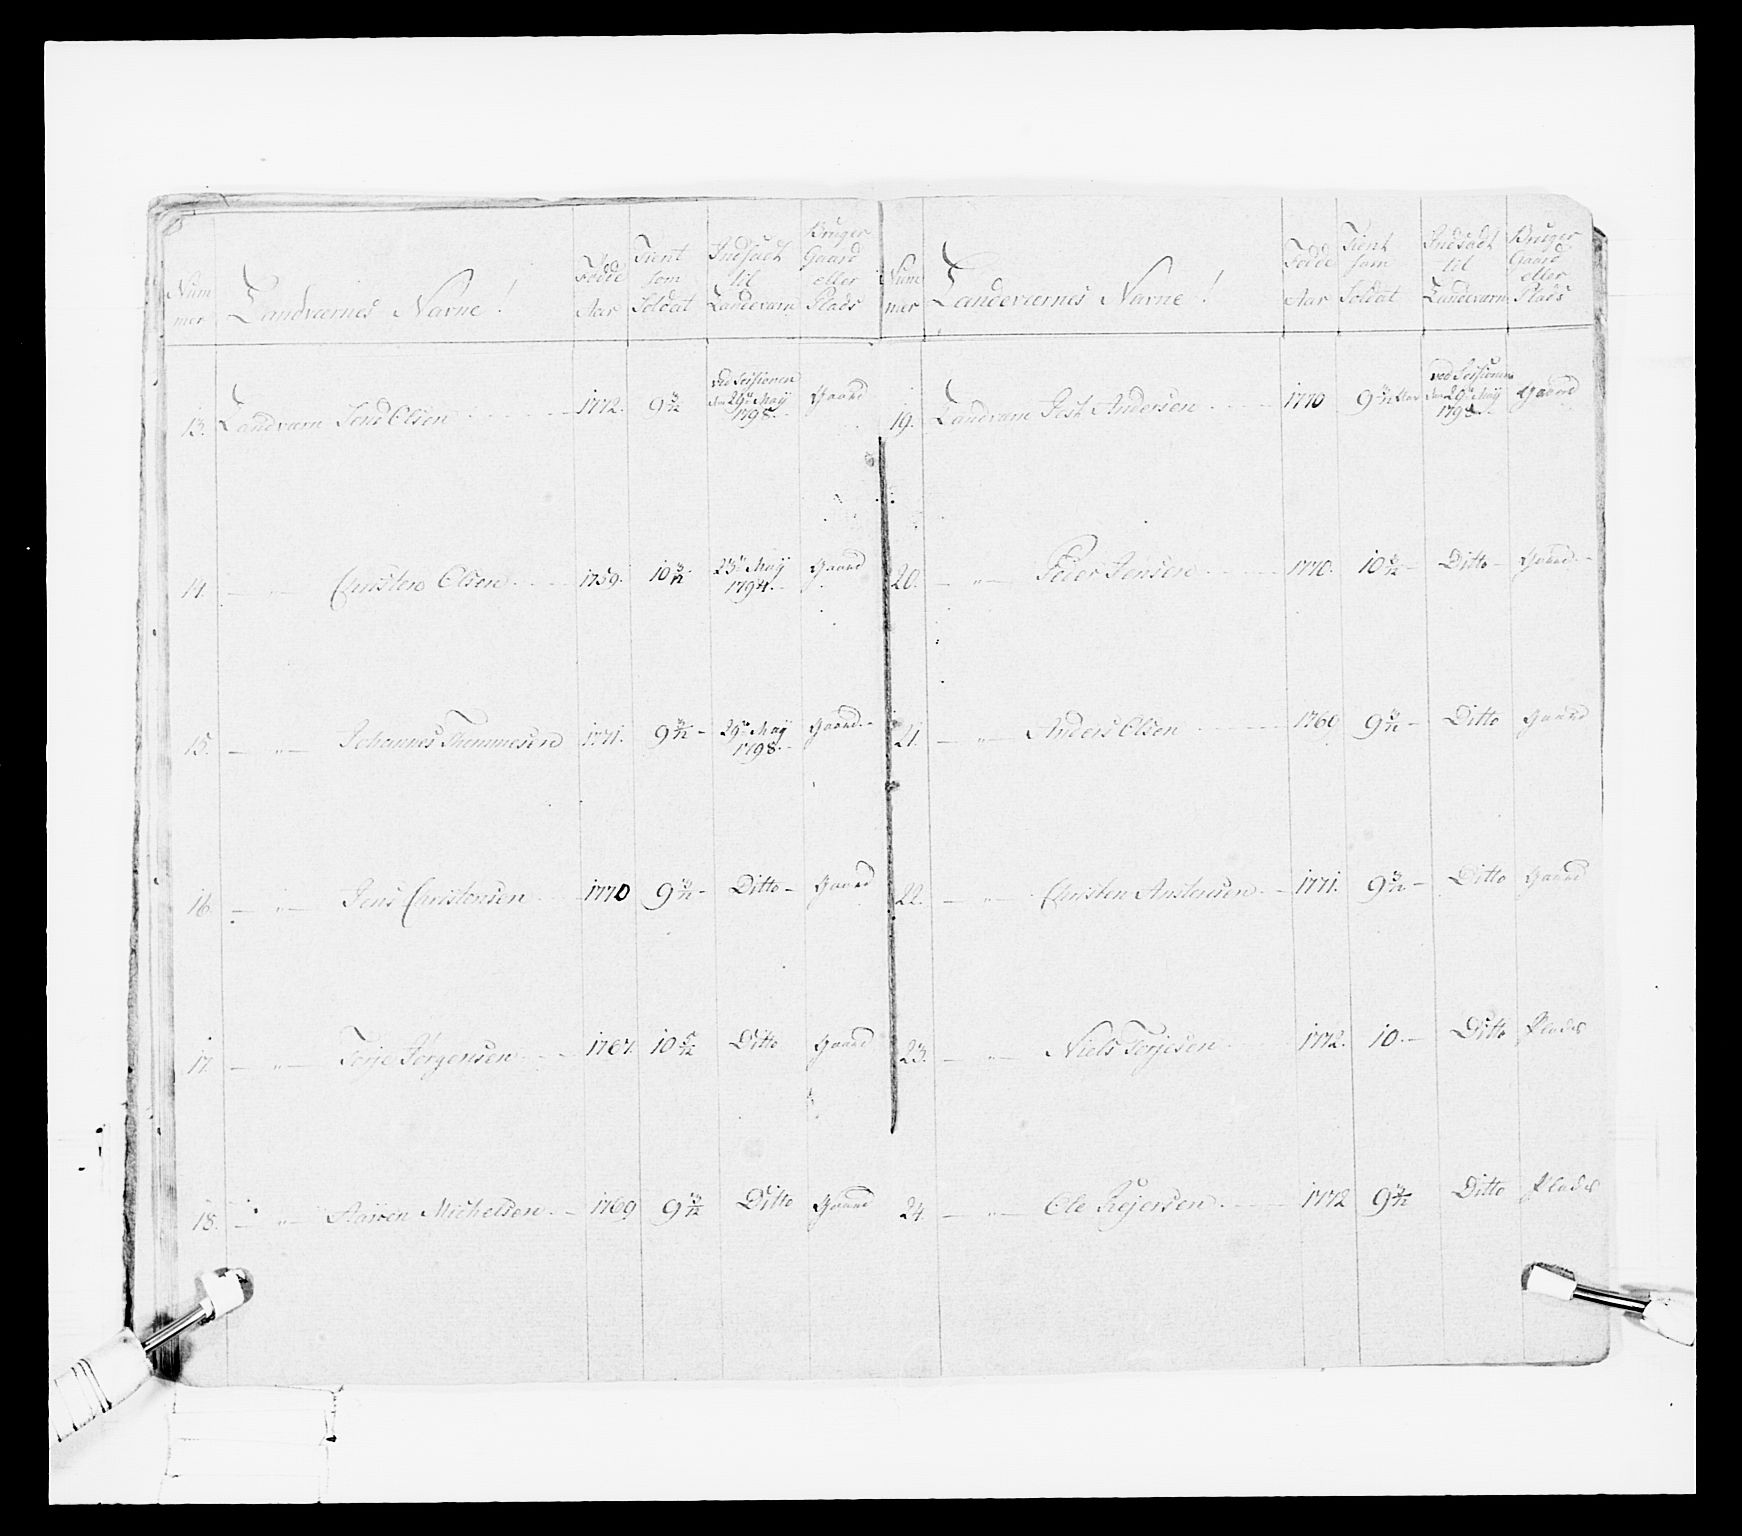 Num mer | Landværnes Navne! | Födde Aar | Tient som Soldat | Indsadt til Landeværn | Bruger Gaard eller Plads
13. Landværn Jens Olsen 1772. 9 ved Sessionen den 29de Maij 1798. Gaard
14. — „ — Christen Olsen 1759. 10 23de Maij 1794. Gaard
15. — „ — Johannes Thommesen 1771. 9 29de Maij 1798. Gaard
16. — „ — Jens Christensen 1770 9 Ditto Gaard
17. — „ — Torje Jörgensen 1767. 10 5/12 Ditto Gaard
18. — „ — Michelsen 1769 9 Ditto Gaard
Num mer | Landeværnes Navne! | Födde Aar | Tient som Soldat | Indsadt til Landeværn | Bruger Gaard eller Plads
19. Landværn Andersen 1770 9 ved Sessionen den 29de Maij 1798. Gaard
20. — „ — Peder Jensen 1770. 10 Ditto Gaard
21. — „ — Anders Olsen 1769 9 Ditto Gaard
22. — „ — Christen 1771. 9 Ditto Gaard
23. — „ — Niels Torjesen 1772. 10. Ditto Plads
24. — „ — Ole 1772 9 Ditto Plads